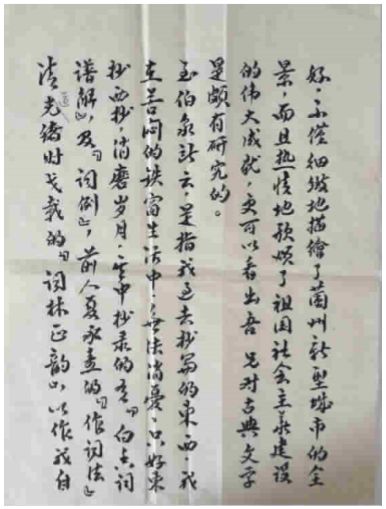 好，不僅細緻地描繪了蘭州新型城市的全
景，而且热情地歌颂了祖国社会主義建設
的伟大成就，更可以看出吾 兄对古典文学
是颇有研究的。
至伯泉所云，是指我过去抄写的東西，我
在苦闷的铁窗生活中，無法消憂，只好東
抄西抄，消磨岁月，其中抄录的有『白香詞
谱解』，及『詞例』，前人夏承焘的『作詞法』
清光绪时戈载的『词林正韵』，以作我自